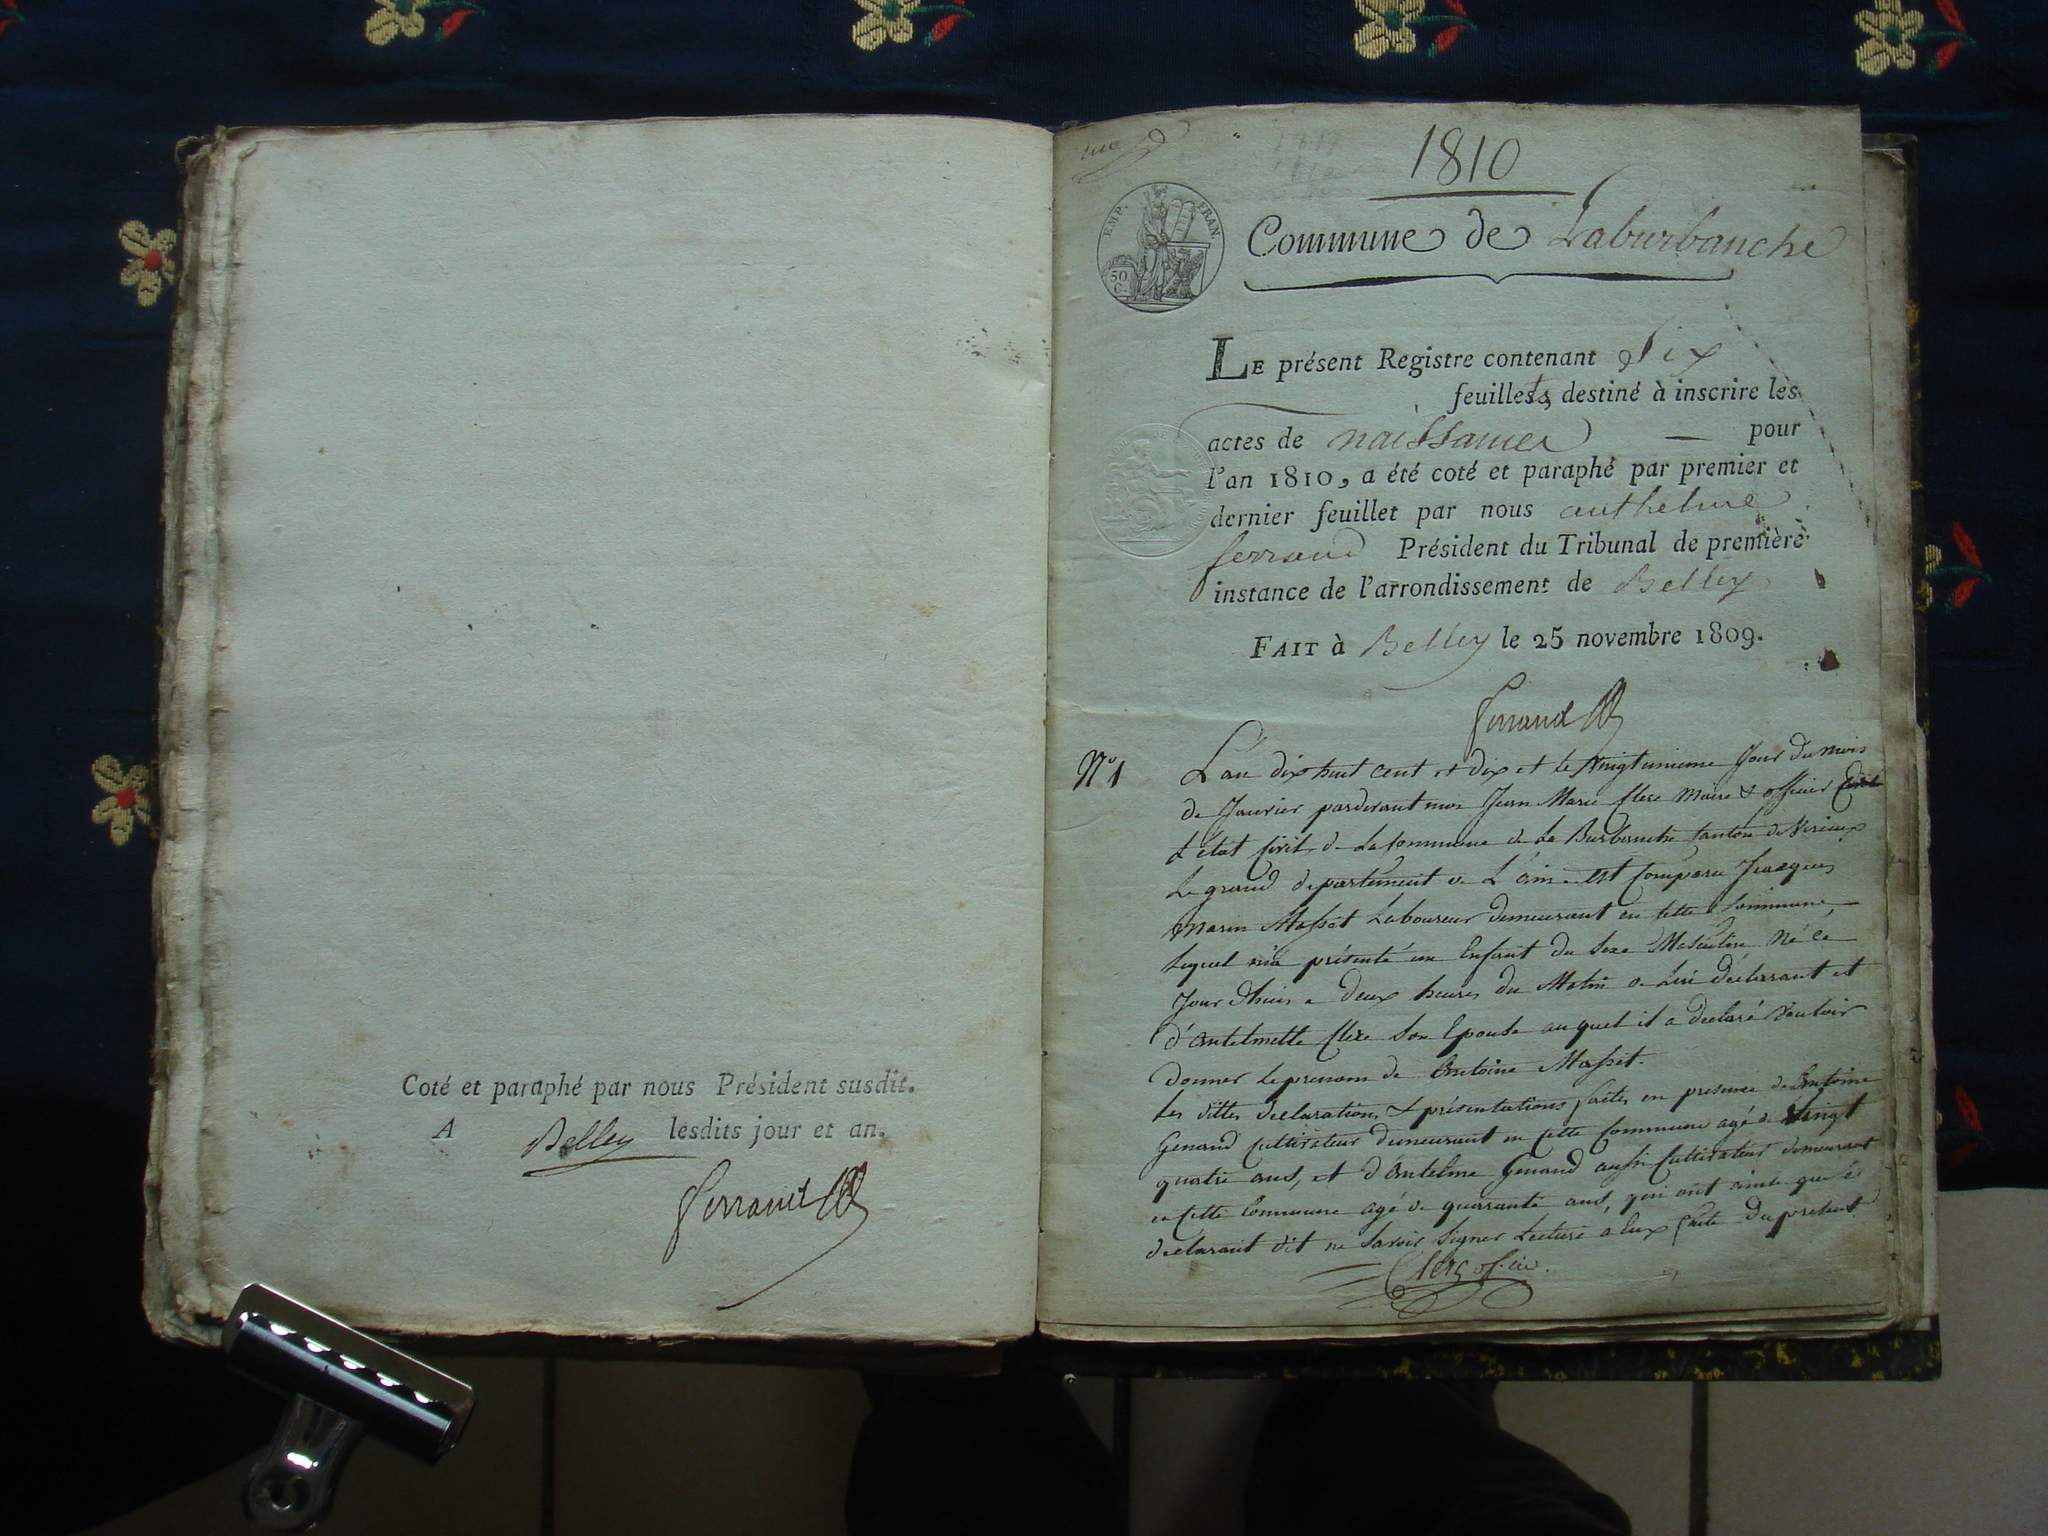 Coté et paraphé par nous Président susdit.
A Belley lesdits jour et an.
Ferrand
1810
EMP. FRAN.
50 C.
Commune de Laburbanche
LE présent Registre contenant Six
feuillets, destiné à inscrire les
actes de naissances — pour
l'an 1810, a été coté et paraphé par premier et
dernier feuillet par nous anthelme
ferrand Président du Tribunal de première
instance de l'arrondissement de Belley
FAIT à Belley le 25 novembre 1809.
Ferrand
N° 1
L'an dix huit cent et dix et le vingtunieme Jour du mois
de Janvier pardevant moi Jean Marie Clerc Maire & officier
d'état Civil de La Commune de La Burbanche Canton de Virieux
Le grand departement de L'ain est Comparu Jacques
Marin Masset Laboureur demeurant en cette Commune,
Lequel m'a présenté un Enfant du Sexe Masculin Né ce
Jour d'hui a deux heures du Matin de Lui déclarant et
d'Antelmette Clerc Son Epouse auquel il a declaré vouloir
donner le prenom de Antoine Masset.
Les dittes declarations & présentations faites en presence de Antoine
Genand Cultivateur demeurant en cette Commune agé de vingt
quatre ans, et d'Antelme Genand aussi Cultivateur demeurant
en cette Commune agé de quarante ans, qui ont ainsi que le
declarant dit ne Savoir Signer Lecture a Eux faite du present
Clerc of. civ.